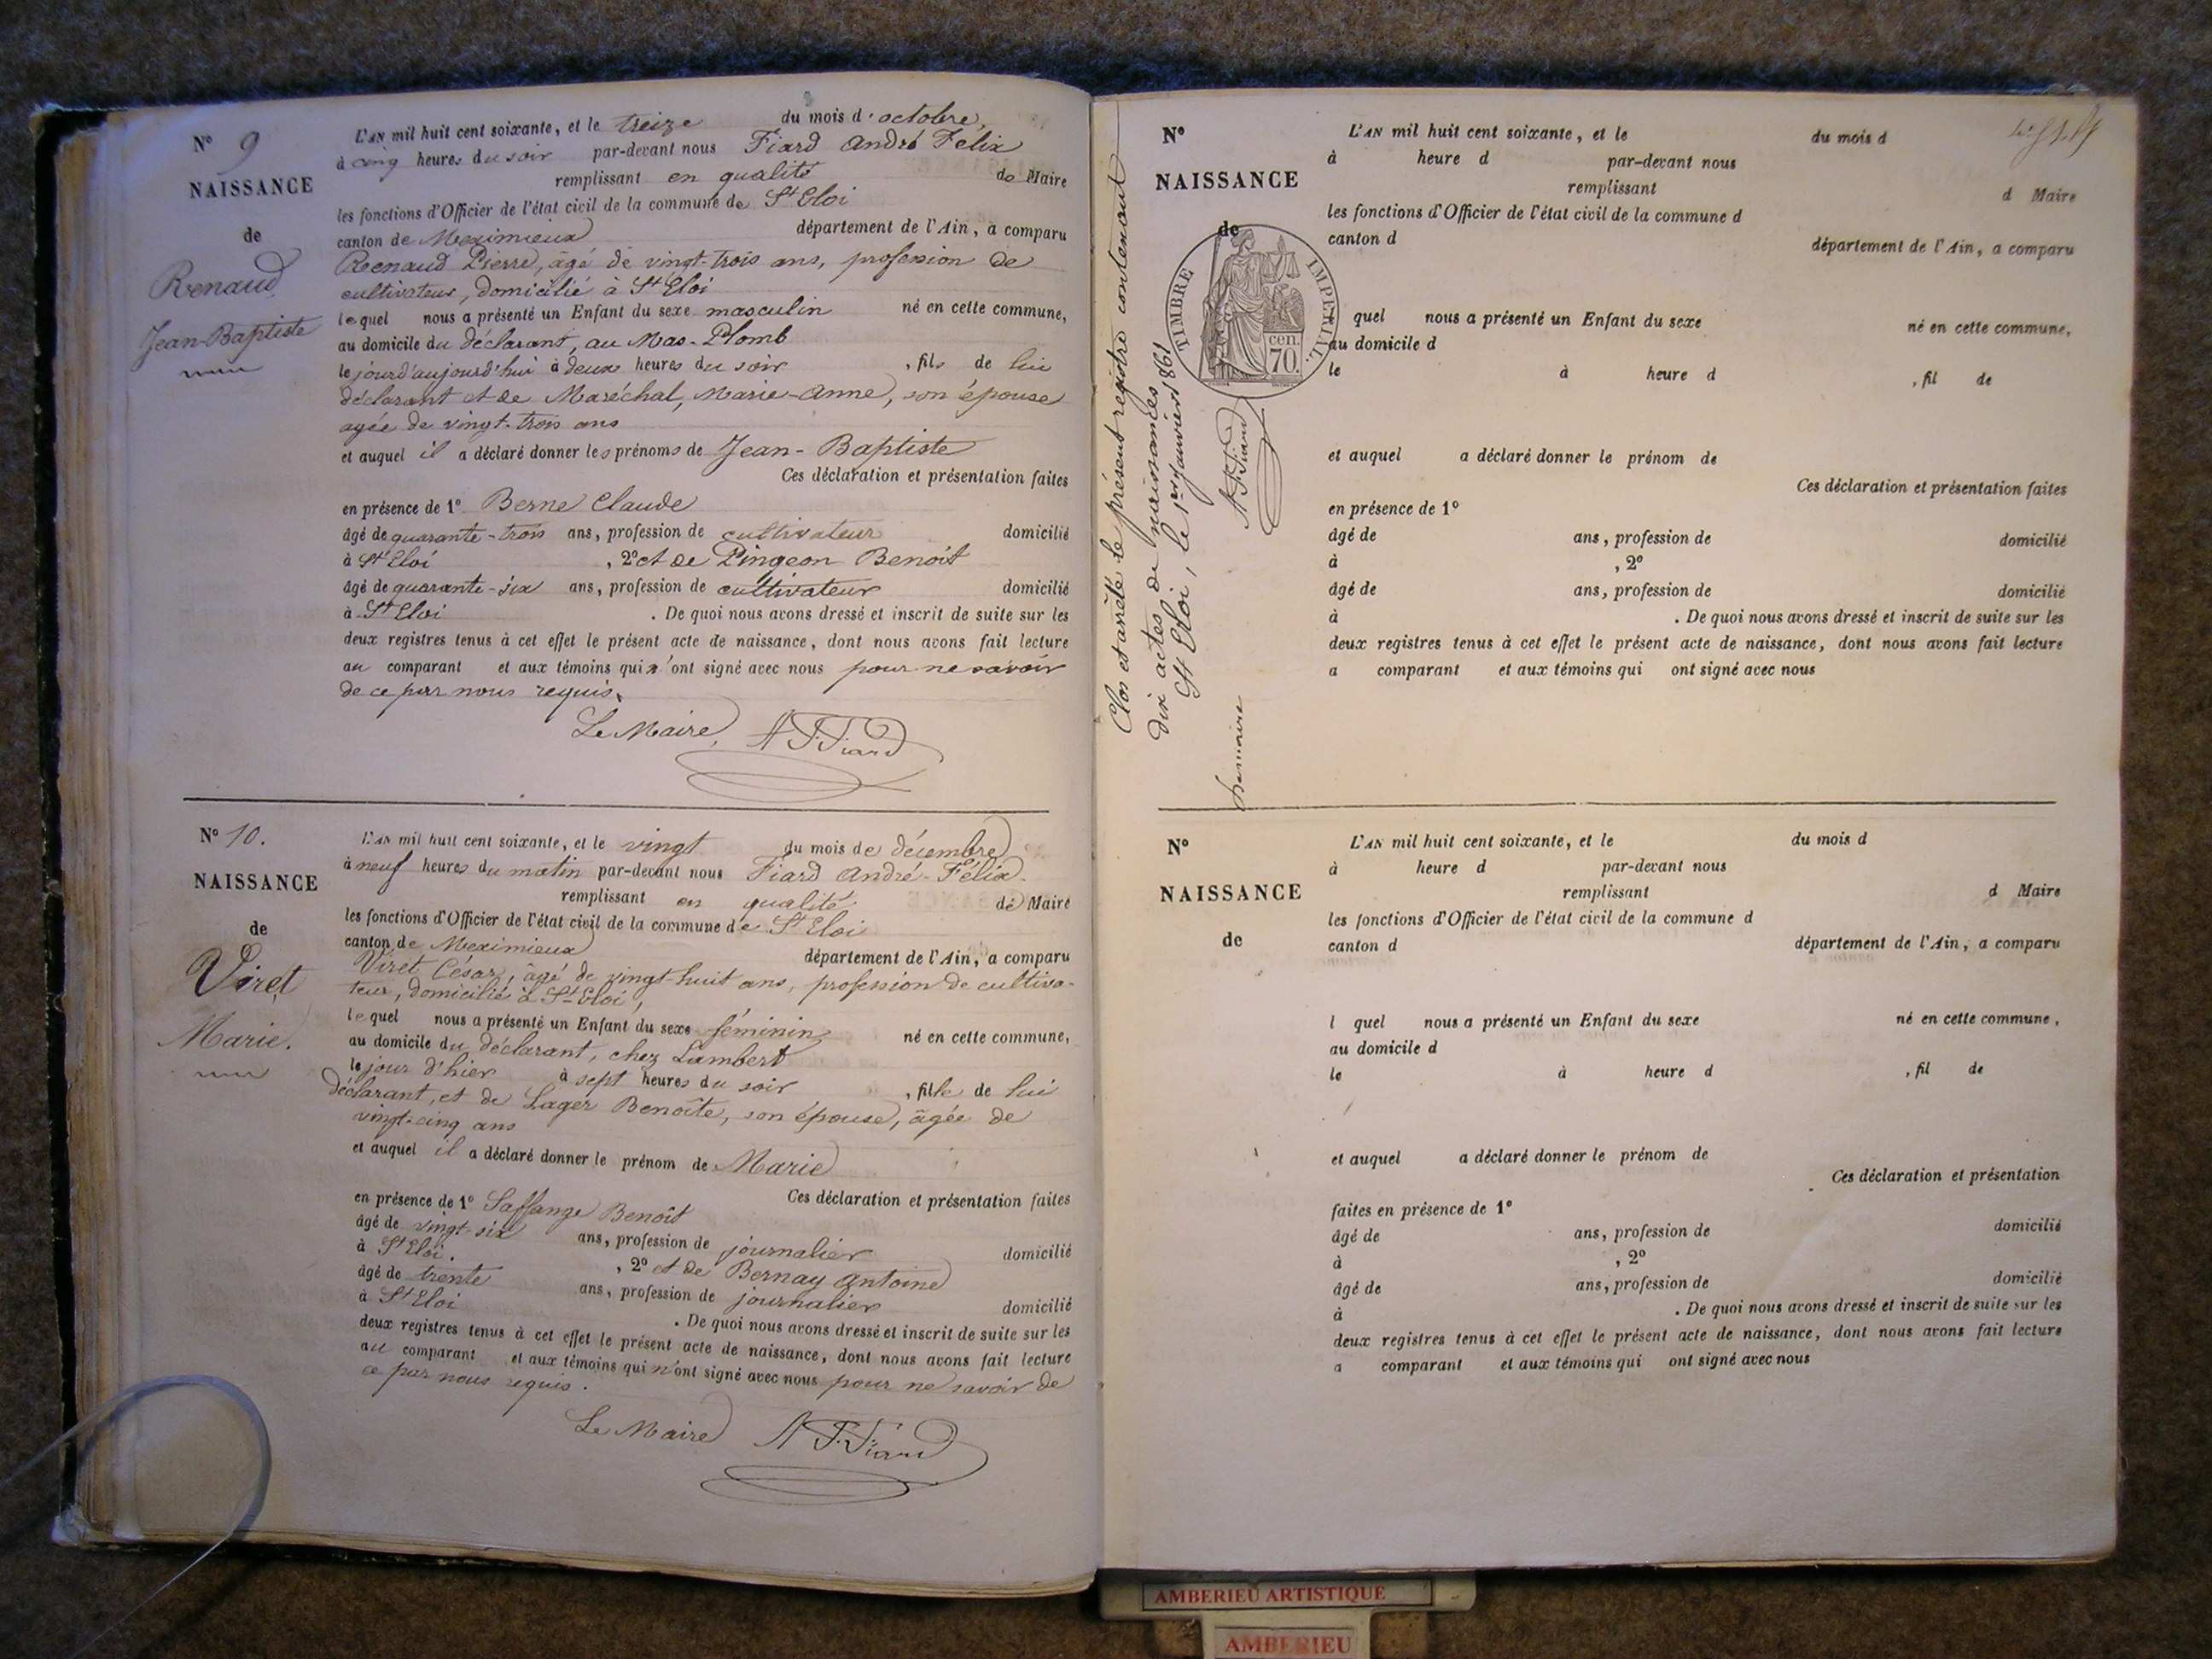 N° 9
NAISSANCE
de
Renaud
Jean-Baptiste
L'AN mil huit cent soixante, et le treize du mois d'octobre,
à cinq heures du soir par-devant nous Fiard André Félix
remplissant en qualité de Maire
les fonctions d'Officier de l'état civil de la commune de St Eloi
canton de Meximieux département de l'Ain, a comparu
Renaud Pierre, âgé de vingt-trois ans, profession de
cultivateur, domicilié à St Eloi
lequel nous a présenté un Enfant du sexe masculin né en cette commune,
au domicile du déclarant, au Mas-Plomb
le jourd'aujourd'hui à deux heures du soir, fils de lui
déclarant et de Maréchal, Marie-Anne, son épouse
agée de vingt-trois ans
et auquel il a déclaré donner les prénoms de Jean-Baptiste
Ces déclaration et présentation faites
en présence de 1° Berne Claude
âgé de quarante-trois ans, profession de cultivateur domicilié
à St Eloi, 2° et de Pingeon Benoit
âgé de quarante-six ans, profession de cultivateur domicilié
à St Eloi. De quoi nous avons dressé et inscrit de suite sur les
deux registres tenus à cet effet le présent acte de naissance, dont nous avons fait lecture
au comparant et aux témoins qui n'ont signé avec nous pour ne savoir
de ce par nous requis.
Le Maire, A F. Fiard
N° 10.
NAISSANCE
de
Viret
Marie.
L'AN mil huit cent soixante, et le vingt du mois de décembre
à neuf heures du matin par-devant nous Fiard André-Félix
remplissant en qualité de Maire
les fonctions d'Officier de l'état civil de la commune de St Eloi
canton de Meximieux département de l'Ain, a comparu
Viret César, âgé de vingt-huit ans, profession de cultiva-
teur, domicilié à St Eloi,
lequel nous a présenté un Enfant du sexe féminin né en cette commune,
au domicile du déclarant, chez Lambert
le jour d'hier à sept heures du soir, fille de lui
déclarant, et de Lager Benoîte, son épouse, âgée de
vingt-cinq ans
et auquel il a déclaré donner le prénom de Marie
Ces déclaration et présentation faites
en présence de 1° Saffange Benoît
âgé de vingt-six ans, profession de journalier domicilié
à St Eloi., 2° et de Bernay Antoine
âgé de trente ans, profession de journalier domicilié
à St Eloi. De quoi nous avons dressé et inscrit de suite sur les
deux registres tenus à cet effet le présent acte de naissance, dont nous avons fait lecture
au comparant et aux témoins qui n'ont signé avec nous pour ne savoir de
ce par nous requis.
Le Maire A F. Fiard
Clos et arrêté le présent registre contenant
dix actes de naissances
St Eloi, le 1er janvier 1861
A F. Fiard
TIMBRE IMPERIAL.
cen.
70.
N°
NAISSANCE
de
L'AN mil huit cent soixante, et le du mois d
à heure d par-devant nous
remplissant d Maire
les fonctions d'Officier de l'état civil de la commune d
canton d département de l'Ain, a comparu
quel nous a présenté un Enfant du sexe né en cette commune,
au domicile d
le à heure d, fil de
et auquel a déclaré donner le prénom de
Ces déclaration et présentation faites
en présence de 1°
âgé de ans, profession de domicilié
à, 2°
âgé de ans, profession de domicilié
à. De quoi nous avons dressé et inscrit de suite sur les
deux registres tenus à cet effet le présent acte de naissance, dont nous avons fait lecture
a comparant et aux témoins qui ont signé avec nous
N°
NAISSANCE
de
L'AN mil huit cent soixante, et le du mois d
à heure d par-devant nous
remplissant d Maire
les fonctions d'Officier de l'état civil de la commune d
canton d département de l'Ain, a comparu
l quel nous a présenté un Enfant du sexe né en cette commune,
au domicile d
le à heure d, fil de
et auquel a déclaré donner le prénom de
Ces déclaration et présentation
faites en présence de 1°
âgé de ans, profession de domicilié
à, 2°
âgé de ans, profession de domicilié
à. De quoi nous avons dressé et inscrit de suite sur les
deux registres tenus à cet effet le présent acte de naissance, dont nous avons fait lecture
a comparant et aux témoins qui ont signé avec nous
AMBERIEU ARTISTIQUE
AMBERIEU